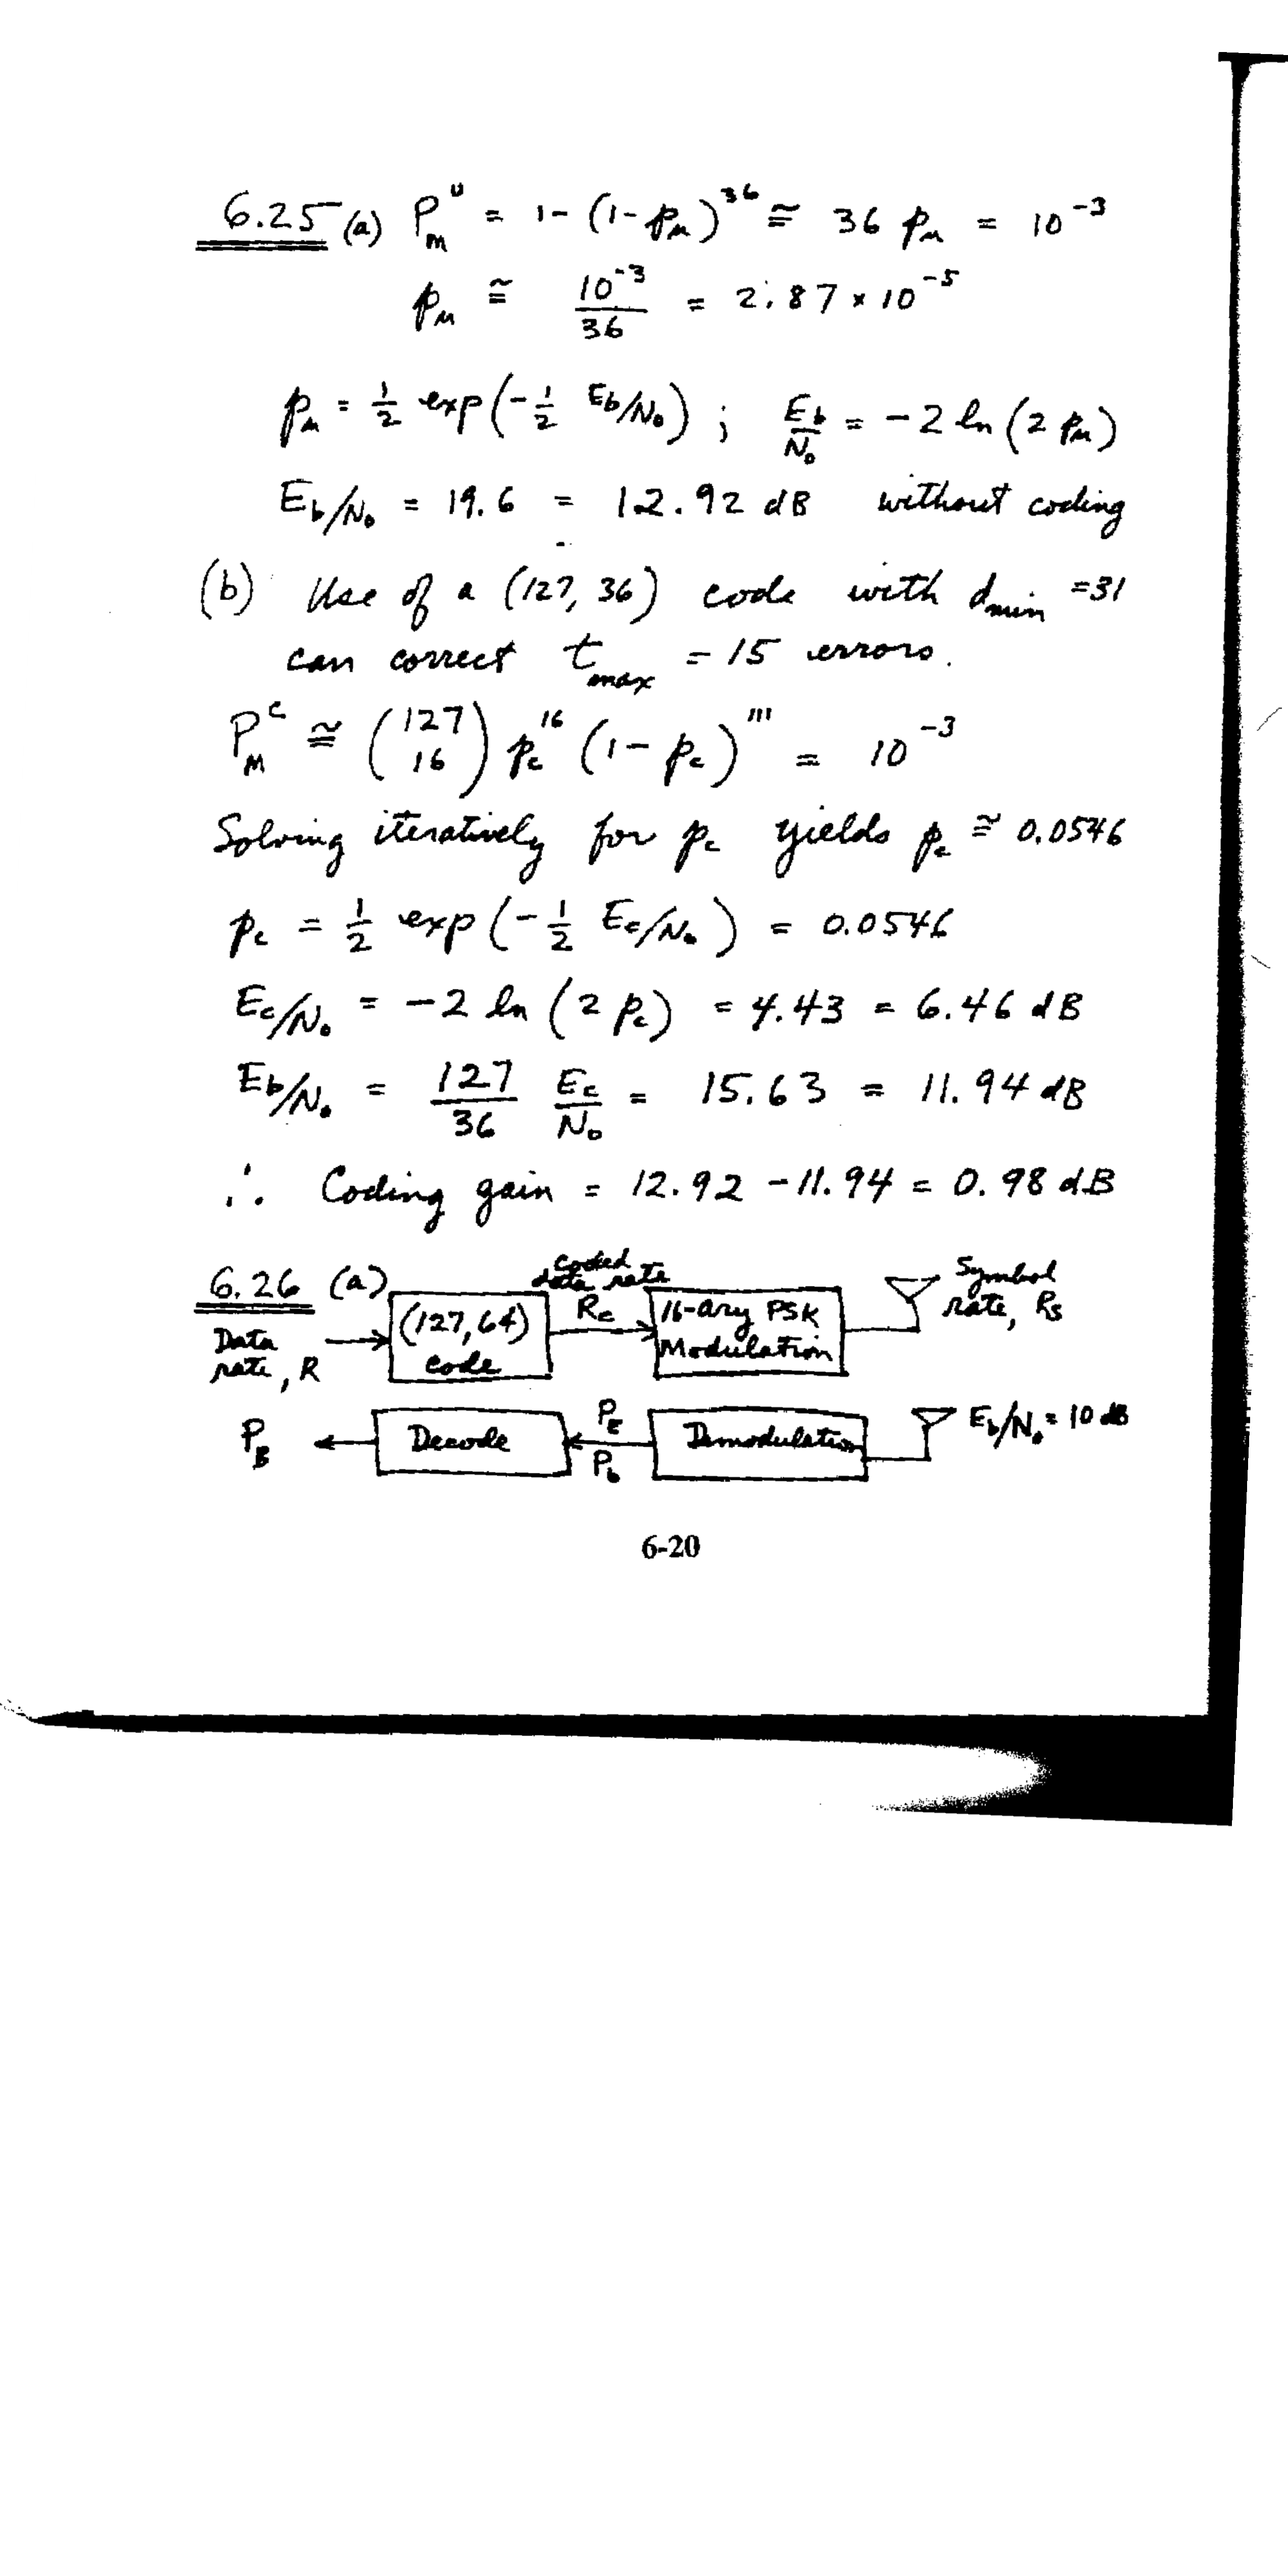 6.25 (a) P_m^u = 1 - (1 - p_u)^36 ≅ 36 p_u = 10^-3
p_u ≅ 10^-3 / 36 = 2.87 × 10^-5
p_u = 1/2 exp(-1/2 Eb/N0) ; Eb/N0 = -2 ln (2 p_u)
Eb/N0 = 19.6 = 12.92 dB without coding
(b) Use of a (127, 36) code with d_min = 31
can correct t_max = 15 errors.
P_M^c ≅ (127 16) p_c^16 (1 - p_c)^111 = 10^-3
Solving iteratively for p_c yields p_c ≅ 0.0546
p_c = 1/2 exp(-1/2 Ec/N0) = 0.0546
Ec/N0 = -2 ln (2 p_c) = 4.43 = 6.46 dB
Eb/N0 = 127/36 Ec/N0 = 15.63 = 11.94 dB
∴ Coding gain = 12.92 - 11.94 = 0.98 dB
6.26 (a)
Data
rate, R
(127,64)
code
coded
data rate
Rc
16-ary PSK
Modulation
Symbol
rate, Rs
P_B
Decode
P_E
P_b
Demodulation
Eb/N0 = 10 dB
6-20